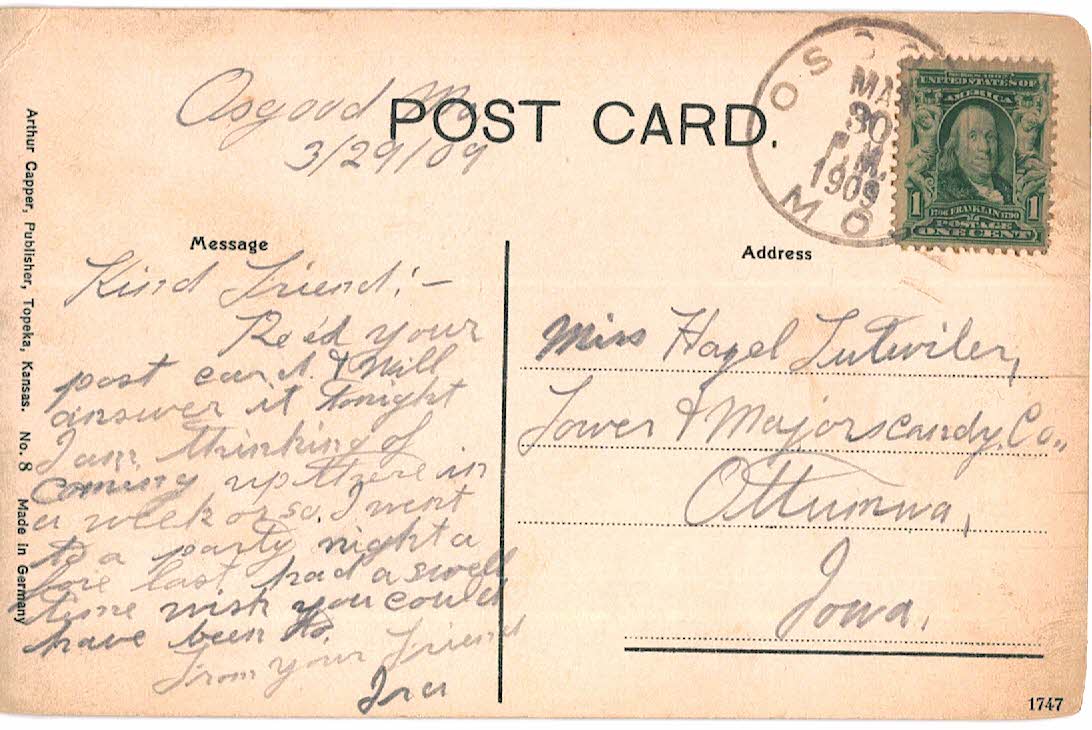 Osgood Mo
POST CARD.
3/29/09
OSGOOD
MAR
30
P.M.
1909
MO
SERIES 1902
UNITED STATES OF
AMERICA
1 1
1706 FRANKLIN 1790
POSTAGE
ONE CENT
Arthur Capper, Publisher, Topeka, Kansas. No. 8 Made in Germany
Message
Kind Friend:—
Rec'd your
post card. & Will
answer it tonight
I am thinking of
coming up there in
a week or so. I went
to a party night a
fore last had a swell
time wish you could
have been to.
From your Friend
Ira
Address
Miss Hazel Lutwiler,
Lower & Majors candy Co.,
Ottumwa,
Iowa.
1747